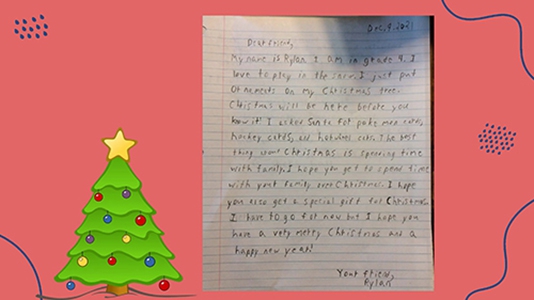 Dec, 9 2021
Dear friend,
My name is Rylan I am in grade 4. I
love to play in the snow. I just put
Ornements on my Christmas tree.
Christmas will be here before you
know it! I asked Santa for poke mon cards,
hockey cards, and hotwheels cars. The best
thing about Christmas is spending time
with family. I hope you get to spend time
with your family over Christmas. I hope
you also get a special gift for Christmas.
I have to go for now but I hope you
have a very merry Christmas and a
happy new year!
Your friend,
Rylan